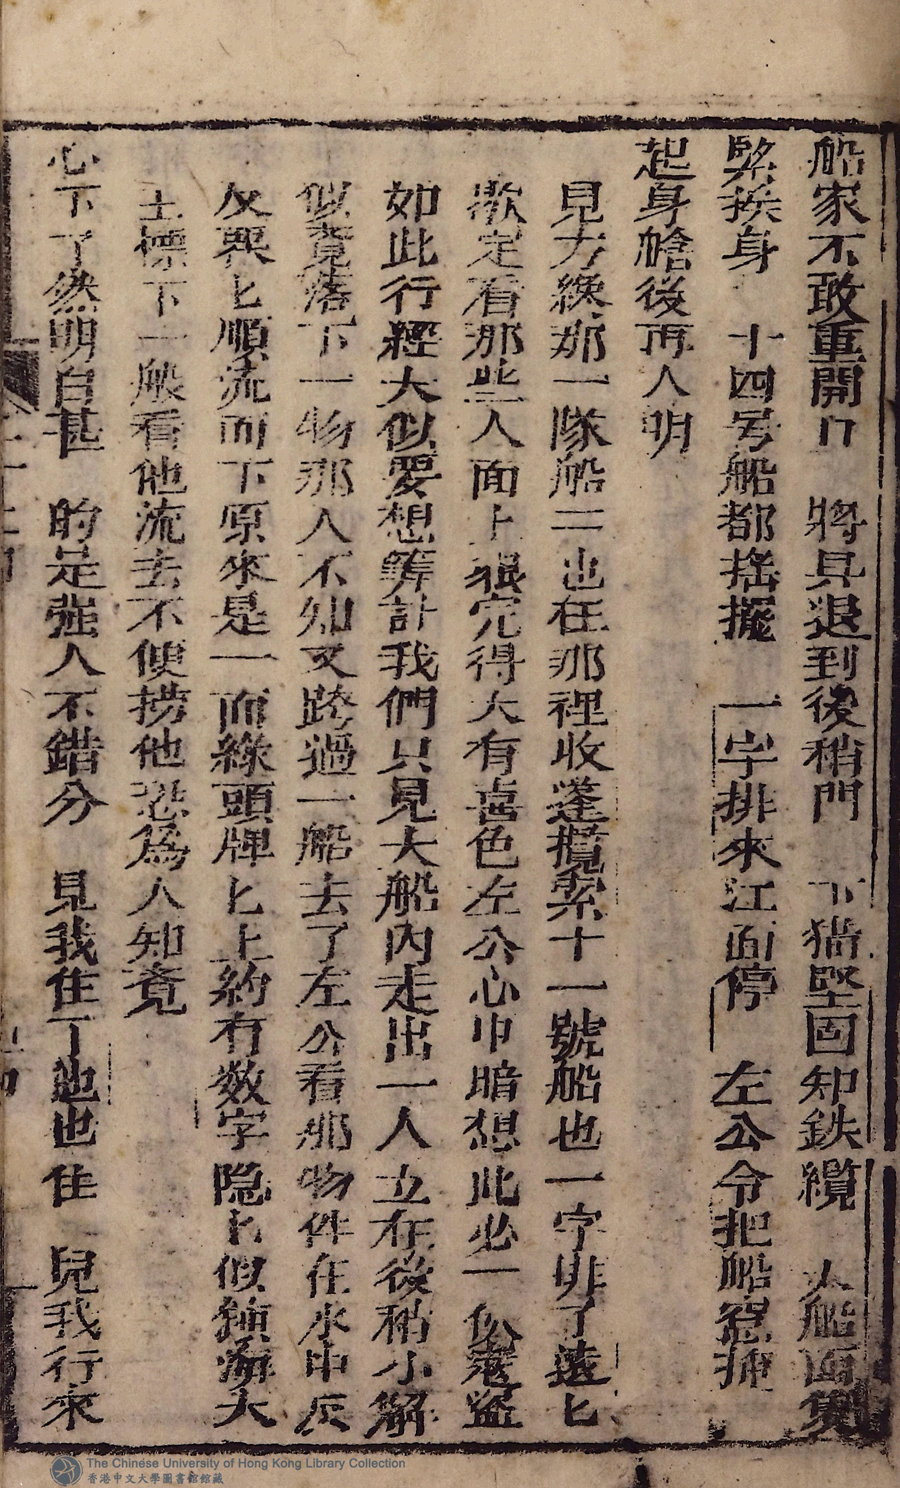 船家不敢重開口　將具退到後稍門　下猶堅固如鉄纜　人船面
緊挨身　十四号船都搖擺　一字排來江面停　左公令把船
起身艙後再人明
見方纔那一隊船　也在那裡收蓬攬索十一號船也一字排了遠匕
歇定看那些人面上狠穴得大有喜色左公心中暗想此必一伙盜
如此行經大似要想筭計我們只見大船內走出一人立在後稍小解
似覺落下一物那人不知又跨過一船去了左公看那物件在水中反
反覆匕順流而下原來是一面綠頭牌匕上約有数字隐匕似鎮海大
王標下一般看他流去不便撈他恐為人知覺
心下了然明白甚　的是强人不錯分　見我住了他也住　見我行來
The Chinese University of Hong Kong Library Collection
香港中文大學圖書館館藏